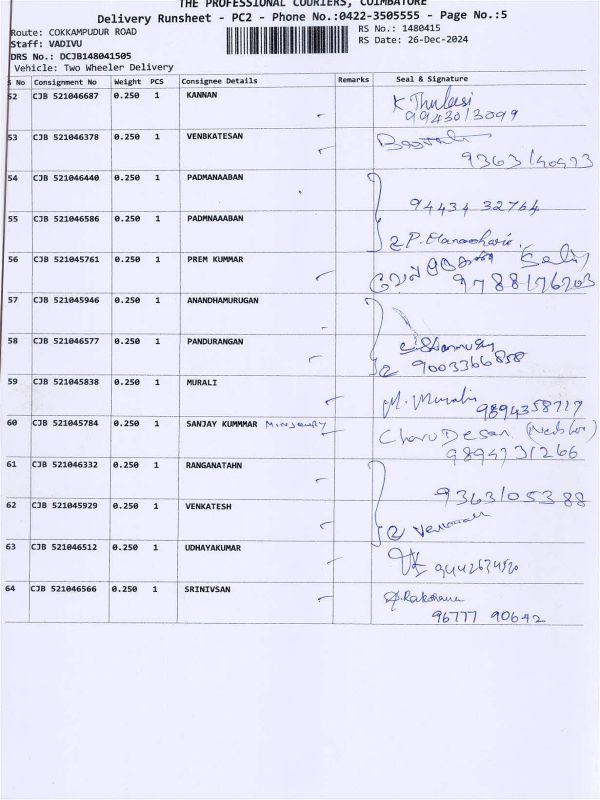 THE PROFESSIONAL COURIERS, COIMBATORE
Delivery Runsheet - PC2 - Phone No.:0422-3505555 - Page No.:5
Route: COKKAMPUDUR ROAD
RS No.: 1480415
Staff: VADIVU
RS Date: 26-Dec-2024
DRS No.: DCJB148041505
Vehicle: Two Wheeler Delivery
S No Consignment No Weight PCS Consignee Details Remarks Seal & Signature
52 CJB 521046687 0.250 1 KANNAN K. Thulasi
9943013099
53 CJB 521046378 0.250 1 VENBKATESAN
54 CJB 521046440 0.250 1 PADMANAABAN
94434 32764
55 CJB 521046586 0.250 1 PADMNAABAN
2 P.
56 CJB 521045761 0.250 1 PREM KUMMAR
9788176203
57 CJB 521045946 0.250 1 ANANDHAMURUGAN
58 CJB 521046577 0.250 1 PANDURANGAN
2 9003366858
59 CJB 521045838 0.250 1 MURALI M. Murali
60 CJB 521045784 0.250 1 SANJAY KUMMMAR
9894731266
61 CJB 521046332 0.250 1 RANGANATAHN
9363105388
62 CJB 521045929 0.250 1 VENKATESH
2
63 CJB 521046512 0.250 1 UDHAYAKUMAR
64 CJB 521046566 0.250 1 SRINIVSAN
96777 90642